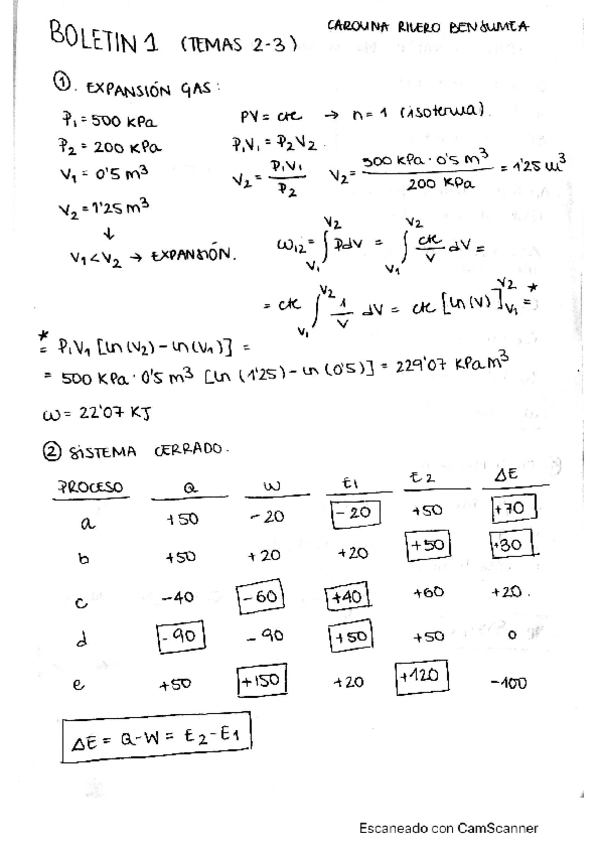 BOLETIN 1 (TEMAS 2-3)
CAROLINA RIVERO BENJUMEA
①. EXPANSIÓN GAS:
P₁ = 500 KPa
P₂ = 200 KPa
V₁ = 0'5 m³
V₂ = 1'25 m³
↓
V₁ < V₂ → EXPANSIÓN.
PV = cte → n = 1 (isoterma).
P₁V₁ = P₂V₂.
V₂ = P₁V₁ / P₂ V₂ = 500 KPa · 0'5 m³ / 200 KPa = 1'25 m³
W₁₂ = ∫V₁V₂ PdV = ∫V₁V₂ cte/V dV =
= cte ∫V₁V₂ 1/V dV = cte [ln(V)]V₁V₂ =*
*= P₁V₁ [ln(V₂) - ln(V₁)] =
= 500 KPa · 0'5 m³ [ln (1'25) - ln (0'5)] = 229'07 KPa m³
W = 22'07 KJ
② SISTEMA CERRADO.
PROCESO Q W E1 E2 ΔE
a +50 -20 -20 +50 +70
b +50 +20 +20 +50 +30
c -40 -60 +40 +60 +20.
d -90 -90 +50 +50 0
e +50 +150 +20 +120 -100
ΔE = Q-W = E2-E1
Escaneado con CamScanner